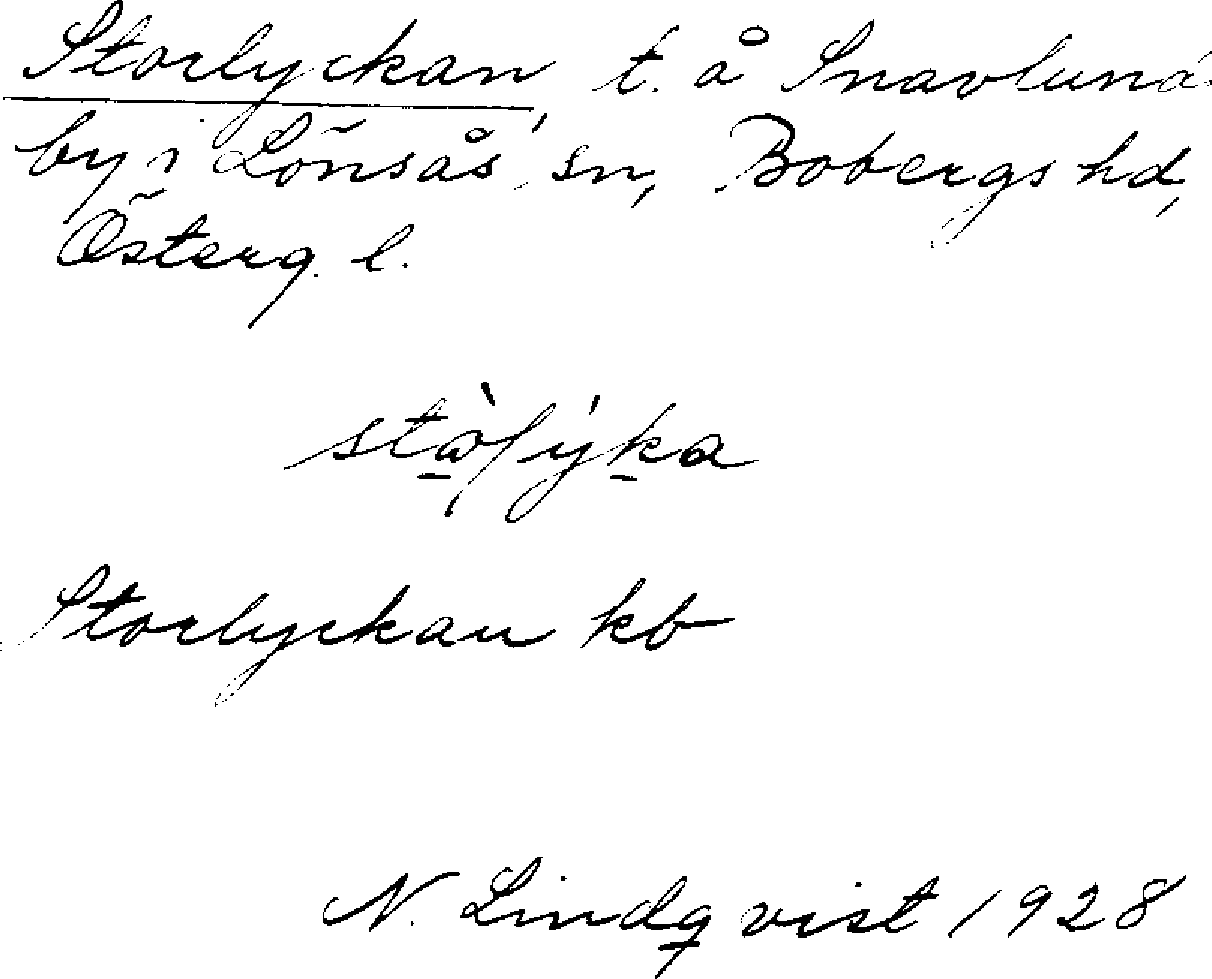 Storlyckan, t. å Snavlunda
by i Lönsås sn, Bobergs hd,
Österg. l.
Storlyckan kb
N. Lindqvist 1928